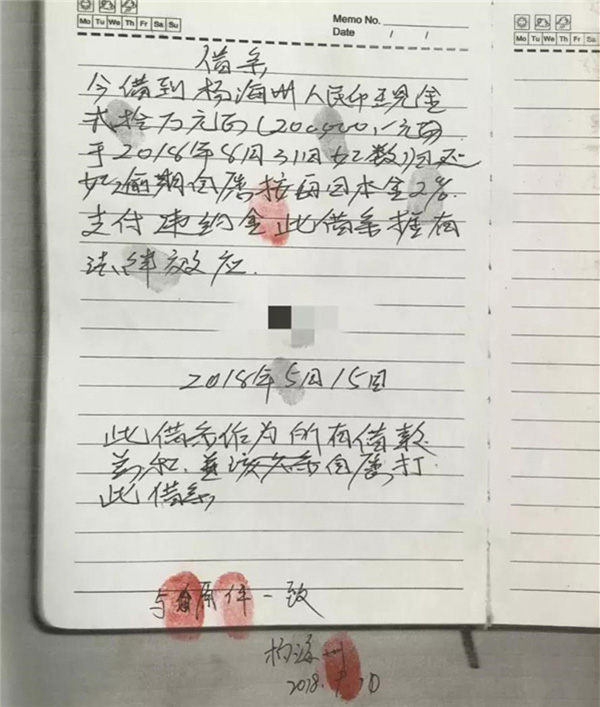 Memo No.
Mo Tu We Th Fr Sa Su
Date / /
Mo Tu We Th Fr Sa Su
借条
今借到杨海州人民币现金
贰拾万元正(200000.元正
于2018年8月31日如数归还
如逾期自愿按每日本金2%
支付违约金此借条拥有
法律效应.
2018年5月15日
此借条作为所有借款
总和.自愿打
此借条
与原件一致
杨海州
2018.9.10